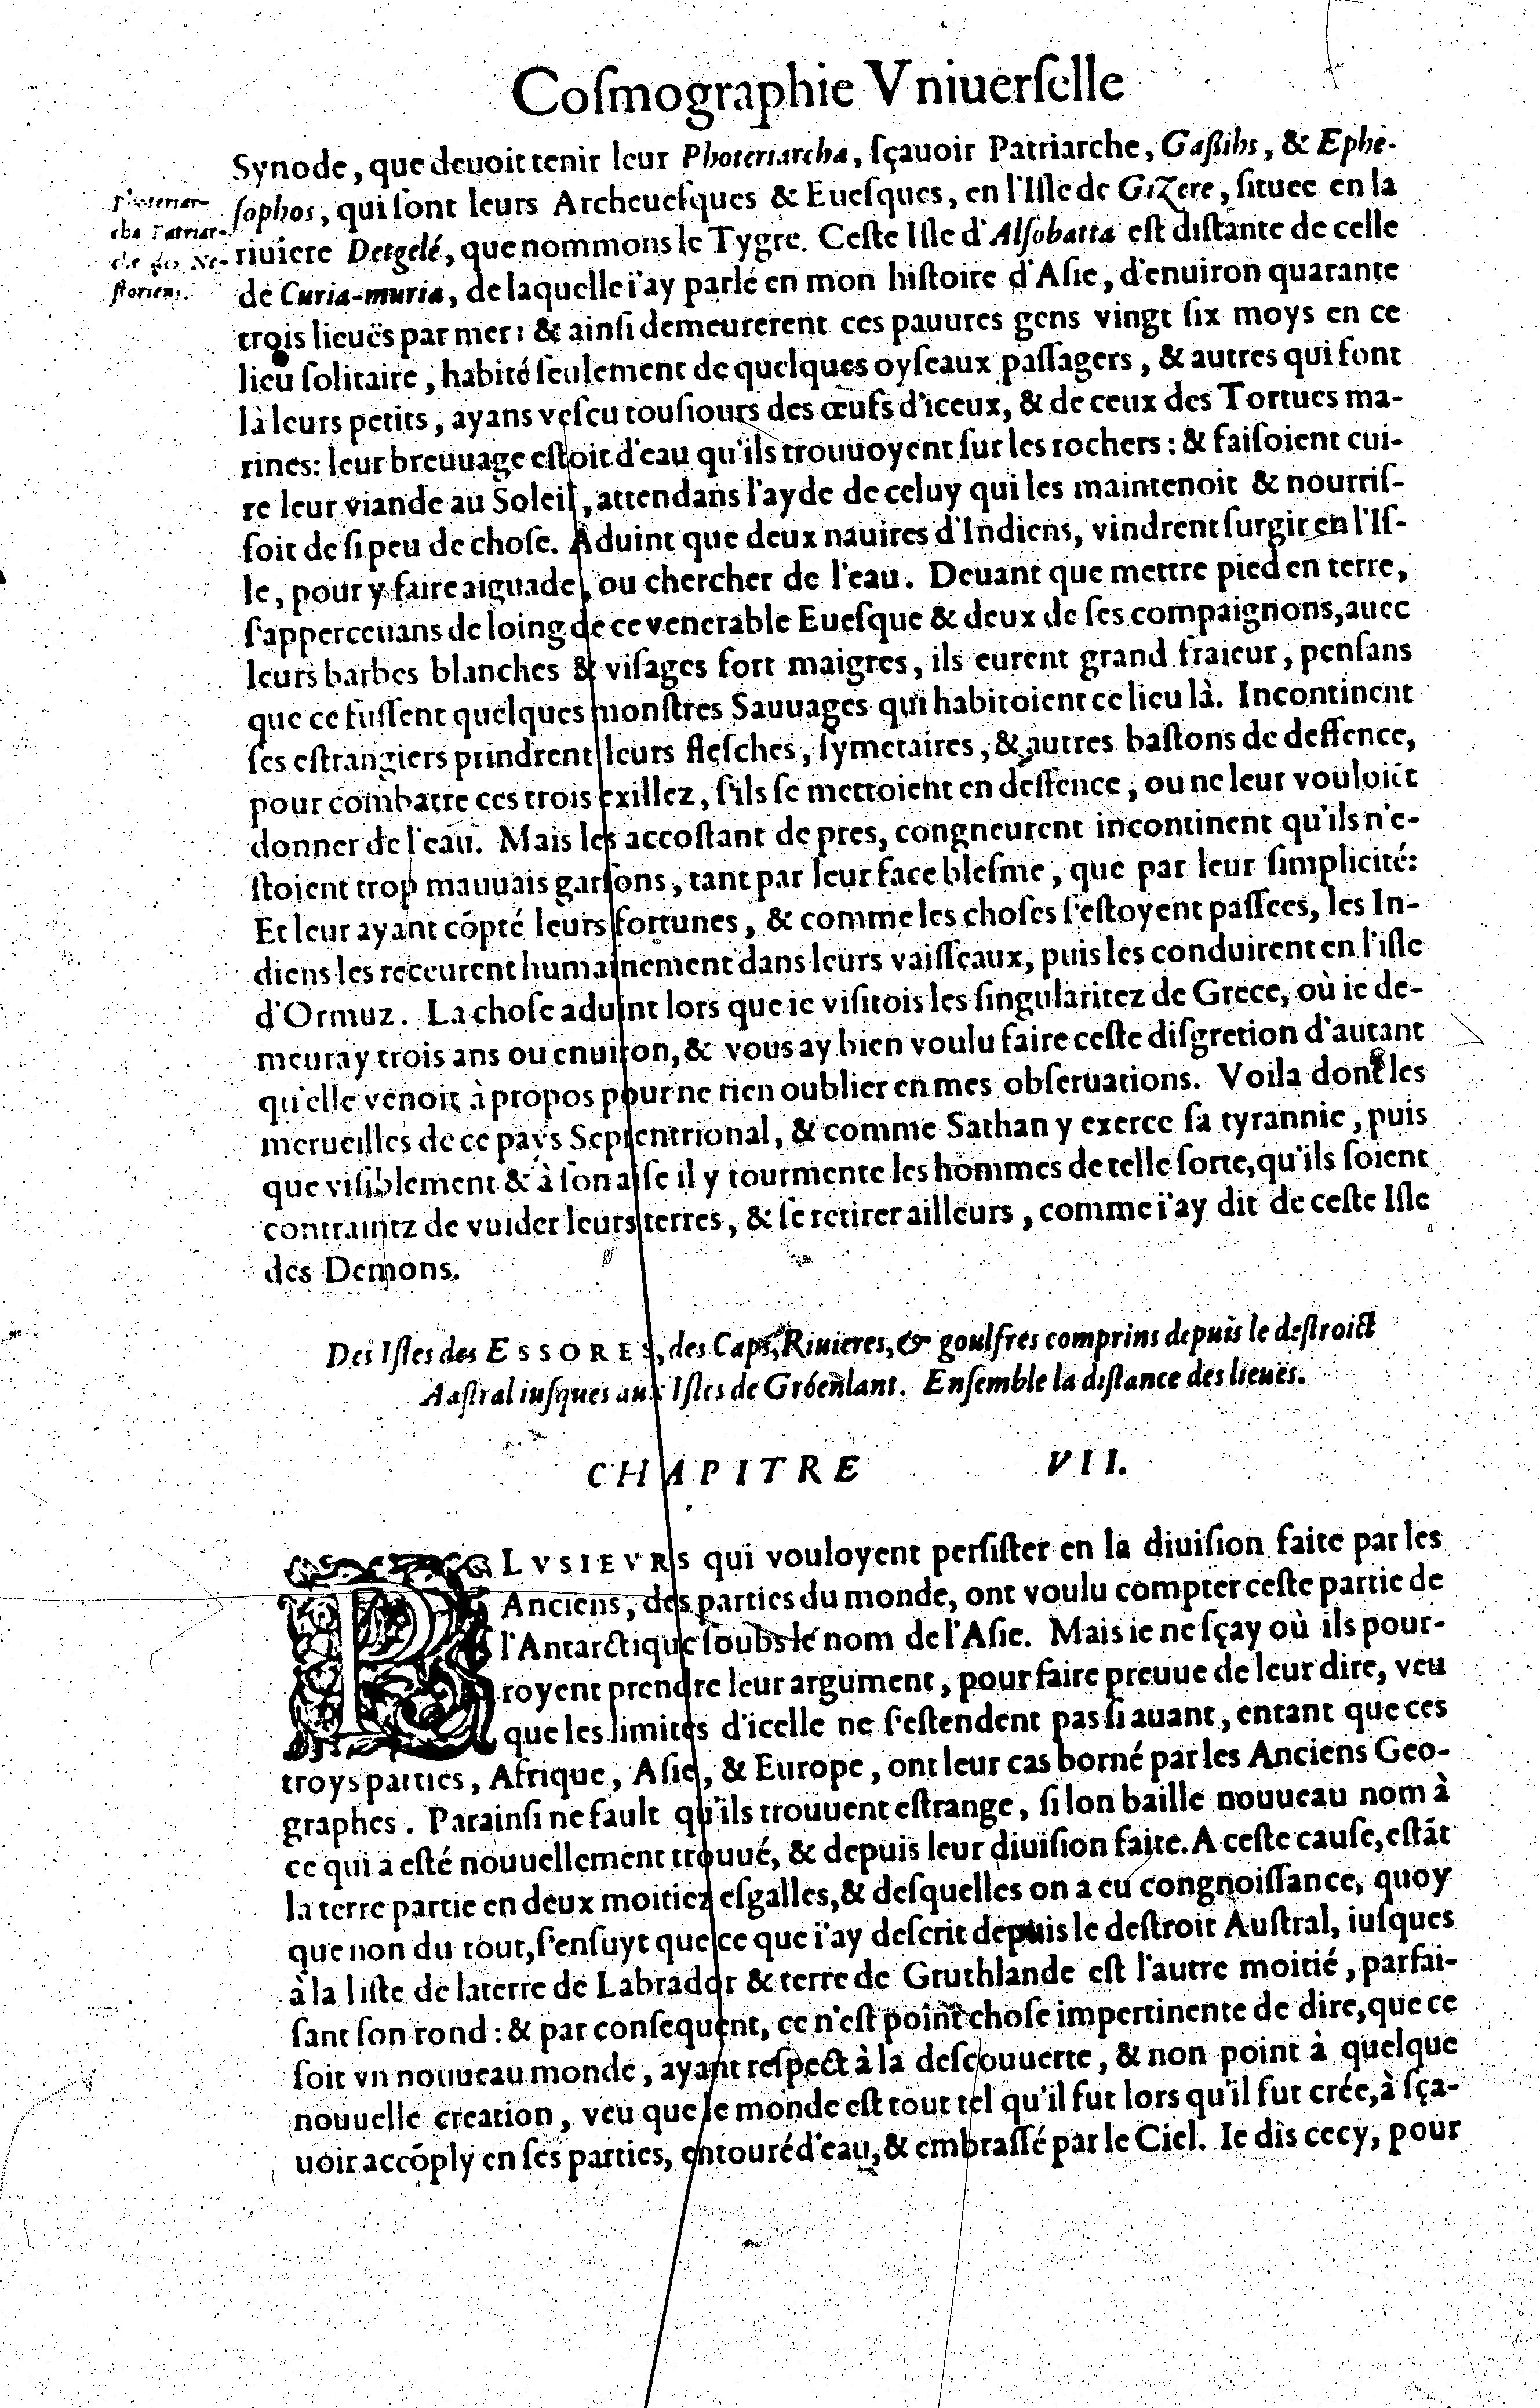 Coſmographie Vniuerſelle
Synode, que deuoit tenir leur Photeriarcha, ſçauoir Patriarche, Gaſtihs, & Ephe-
ſophos, qui ſont leurs Archeueſques & Eueſques, en l'Iſle de GiZere, ſituee en la
riuiere Detgelé, que nommons le Tygre. Ceſte Iſle d'Alſobatta eſt diſtante de celle
de Curia-muria, de laquelle i'ay parlé en mon hiſtoire d'Aſie, d'enuiron quarante
trois lieuës par mer: & ainſi demeurerent ces pauures gens vingt ſix moys en ce
lieu ſolitaire, habité ſeulement de quelques oyſeaux paſſagers, & autres qui font
là leurs petits, ayans veſcu touſiours des œufs d'iceux, & de ceux des Tortues ma-
rines: leur breuuage eſtoit d'eau qu'ils trouuoyent ſur les rochers: & faiſoient cui-
re leur viande au Soleil, attendans l'ayde de celuy qui les maintenoit & nourriſ-
ſoit de ſi peu de choſe. Aduint que deux nauires d'Indiens, vindrent ſurgir en l'Iſ-
le, pour y faire aiguade, ou chercher de l'eau. Deuant que mettre pied en terre,
ſ'apperceuans de loing de ce venerable Eueſque & deux de ſes compaignons, auec
leurs barbes blanches & viſages fort maigres, ils eurent grand fraieur, penſans
que ce fuſſent quelques monſtres Sauuages qui habitoient ce lieu là. Incontinent
ſes eſtrangiers prindrent leurs fleſches, ſymetaires, & autres baſtons de deffence,
pour combatre ces trois exillez, ſ'ils ſe mettoient en deffence, ou ne leur vouloiẽt
donner de l'eau. Mais les accoſtant de pres, congneurent incontinent qu'ils n'e-
ſtoient trop mauuais garſons, tant par leur face bleſme, que par leur ſimplicité:
Et leur ayant cõpté leurs fortunes, & comme les choſes ſ'eſtoyent paſſees, les In-
diens les receurent humainement dans leurs vaiſſeaux, puis les conduirent en l'iſle
d'Ormuz. La choſe aduint lors que ie viſitois les ſingularitez de Grece, où ie de-
meuray trois ans ou enuiron, & vous ay bien voulu faire ceſte diſgretion d'autant
qu'elle venoit à propos pour ne rien oublier en mes obſeruations. Voila dont les
merueilles de ce pays Septentrional, & comme Sathan y exerce ſa tyrannie, puis
que viſiblement & à ſon aiſe il y tourmente les hommes de telle ſorte, qu'ils ſoient
contraintz de vuider leurs terres, & ſe retirer ailleurs, comme i'ay dit de ceſte Iſle
des Demons.
Photeriar-
cha Patriar-
che des Ne-
ſtoriens.
Des Iſles des ESSORES, des Caps, Riuieres, & goulfres comprins depuis le deſtroict
Aaſtral iuſques aux Iſles de Gróenlant. Enſemble la diſtance des lieuës.
CHAPITRE VII.
PLVSIEVRS qui vouloyent perſiſter en la diuiſion faite par les
Anciens, des parties du monde, ont voulu compter ceſte partie de
l'Antarctique ſoubs le nom de l'Aſie. Mais ie ne ſçay où ils pour-
royent prendre leur argument, pour faire preuue de leur dire, veu
que les limites d'icelle ne ſ'eſtendent pas ſi auant, entant que ces
troys parties, Afrique, Aſie, & Europe, ont leur cas borné par les Anciens Geo-
graphes. Parainſi ne fault qu'ils trouuent eſtrange, ſi lon baille nouueau nom à
ce qui a eſté nouuellement trouué, & depuis leur diuiſion faite. A ceſte cauſe, eſtãt
la terre partie en deux moitiez eſgalles, & deſquelles on a eu congnoiſſance, quoy
que non du tout, ſ'enſuyt que ce que i'ay deſcrit depuis le deſtroit Auſtral, iuſques
à la liſte de la terre de Labrador & terre de Gruthlande eſt l'autre moitié, parfai-
ſant ſon rond: & par conſequent, ce n'eſt point choſe impertinente de dire, que ce
ſoit vn nouueau monde, ayant reſpect à la deſcouuerte, & non point à quelque
nouuelle creation, veu que le monde eſt tout tel qu'il fut lors qu'il fut crée, à ſça-
uoir accõply en ſes parties, entouré d'eau, & embraſſé par le Ciel. Ie dis cecy, pour